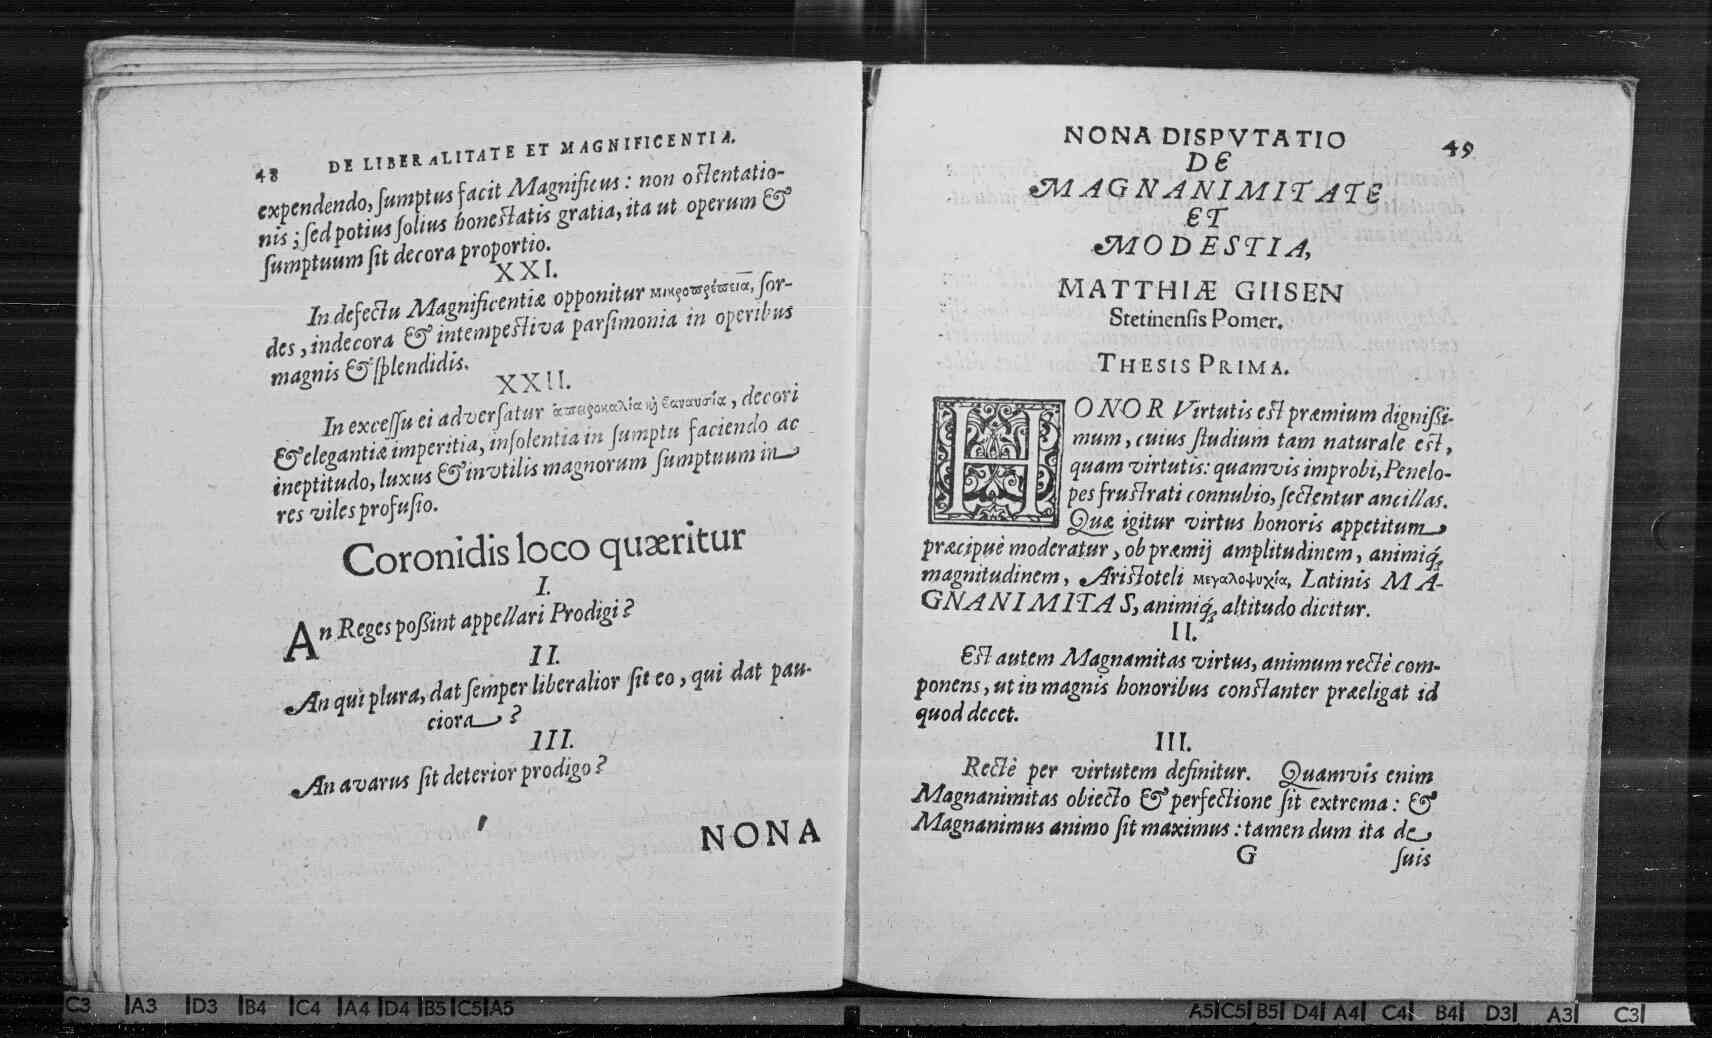 48 DE LIBERALITATE ET MAGNIFICENTIA.
expendendo, ſumptus facit Magnificus: non oſtentatio-
nis; ſed potius ſolius honeſtatis gratia, ita ut operum &
ſumptuum ſit decora proportio.
XXI.
In defectu Magnificentiæ opponitur μικροπρέπεια, ſor-
des, indecora & intempeſtiva parſimonia in operibus
magnis & ſplendidis.
XXII.
In exceſſu ei adverſatur ἀπειροκαλία ϗ βαναυσία, decori
& elegantiæ imperitia, inſolentia in ſumptu faciendo ac
ineptitudo, luxus & inutilis magnorum ſumptuum in
res viles profuſio.
Coronidis loco quæritur
I.
An Reges poßint appellari Prodigi?
II.
An qui plura, dat ſemper liberalior ſit eo, qui dat pau-
ciora?
III.
An avarus ſit deterior prodigo?
NONA
NONA DISPVTATIO 49
DE
MAGNANIMITATE
ET
MODESTIA,
MATTHIÆ GIISEN
Stetinenſis Pomer.
THESIS PRIMA.
HONOR Virtutis eſt præmium digniſſi-
mum, cuius ſtudium tam naturale eſt,
quam virtutis: quamvis improbi, Penelo-
pes fruſtrati connubio, ſectentur ancillas.
Quæ igitur virtus honoris appetitum
præcipuè moderatur, ob præmij amplitudinem, animiq́;
magnitudinem, Ariſtoteli μεγαλοψυχία, Latinis MA-
GNANIMITAS, animiq́; altitudo dicitur.
II.
Eſt autem Magnamitas virtus, animum rectè com-
ponens, ut in magnis honoribus conſtanter præeligat id
quod decet.
III.
Rectè per virtutem definitur. Quamvis enim
Magnanimitas obiecto & perfectione ſit extrema: &
Magnanimus animo ſit maximus: tamen dum ita de
G ſuis
C3 A3 D3 B4 C4 A4 D4 B5 C5 A5
A5 C5 B5 D4 A4 C4 B4 D3 A3 C3